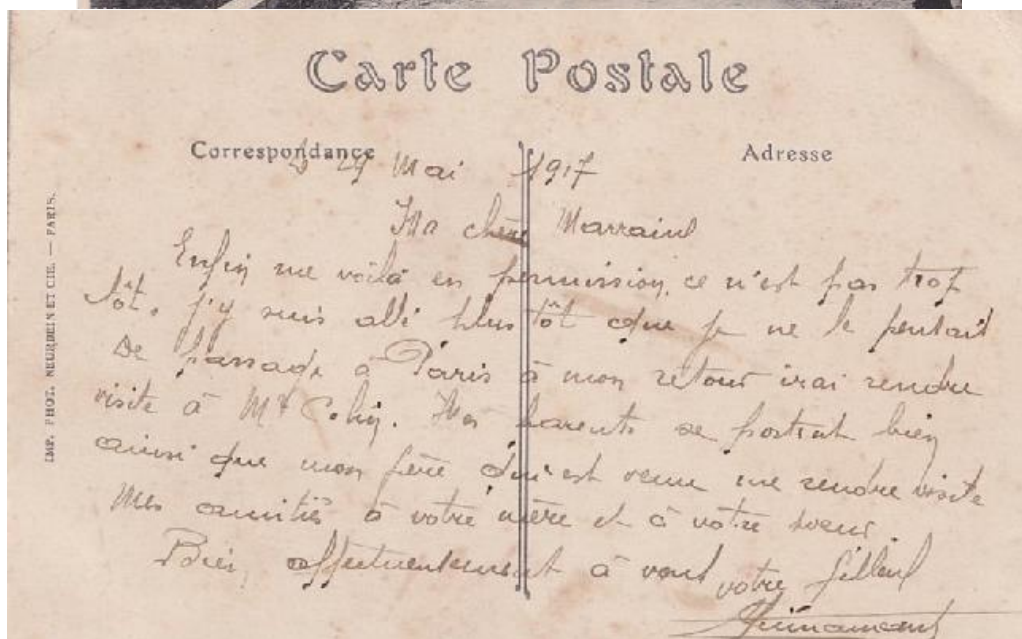 Carte Postale
Correspondance
Adresse
29 Mai 1917
Ma chère Marraine
Enfin me voilà en permission, ce n'est pas trop
tôt. j'y suis allé plus tôt que je ne le pensait
De passage à Paris à mon retour irai rendre
visite à Mr Colin. Mes parents se portent bien
ainsi que mon frère qui est venu me rendre visite
Mes amitiés à votre mère et à votre soeur.
Bien affectueusement à vous votre filleul
IMP. PHOT. NEURDEIN ET CIE. — PARIS.